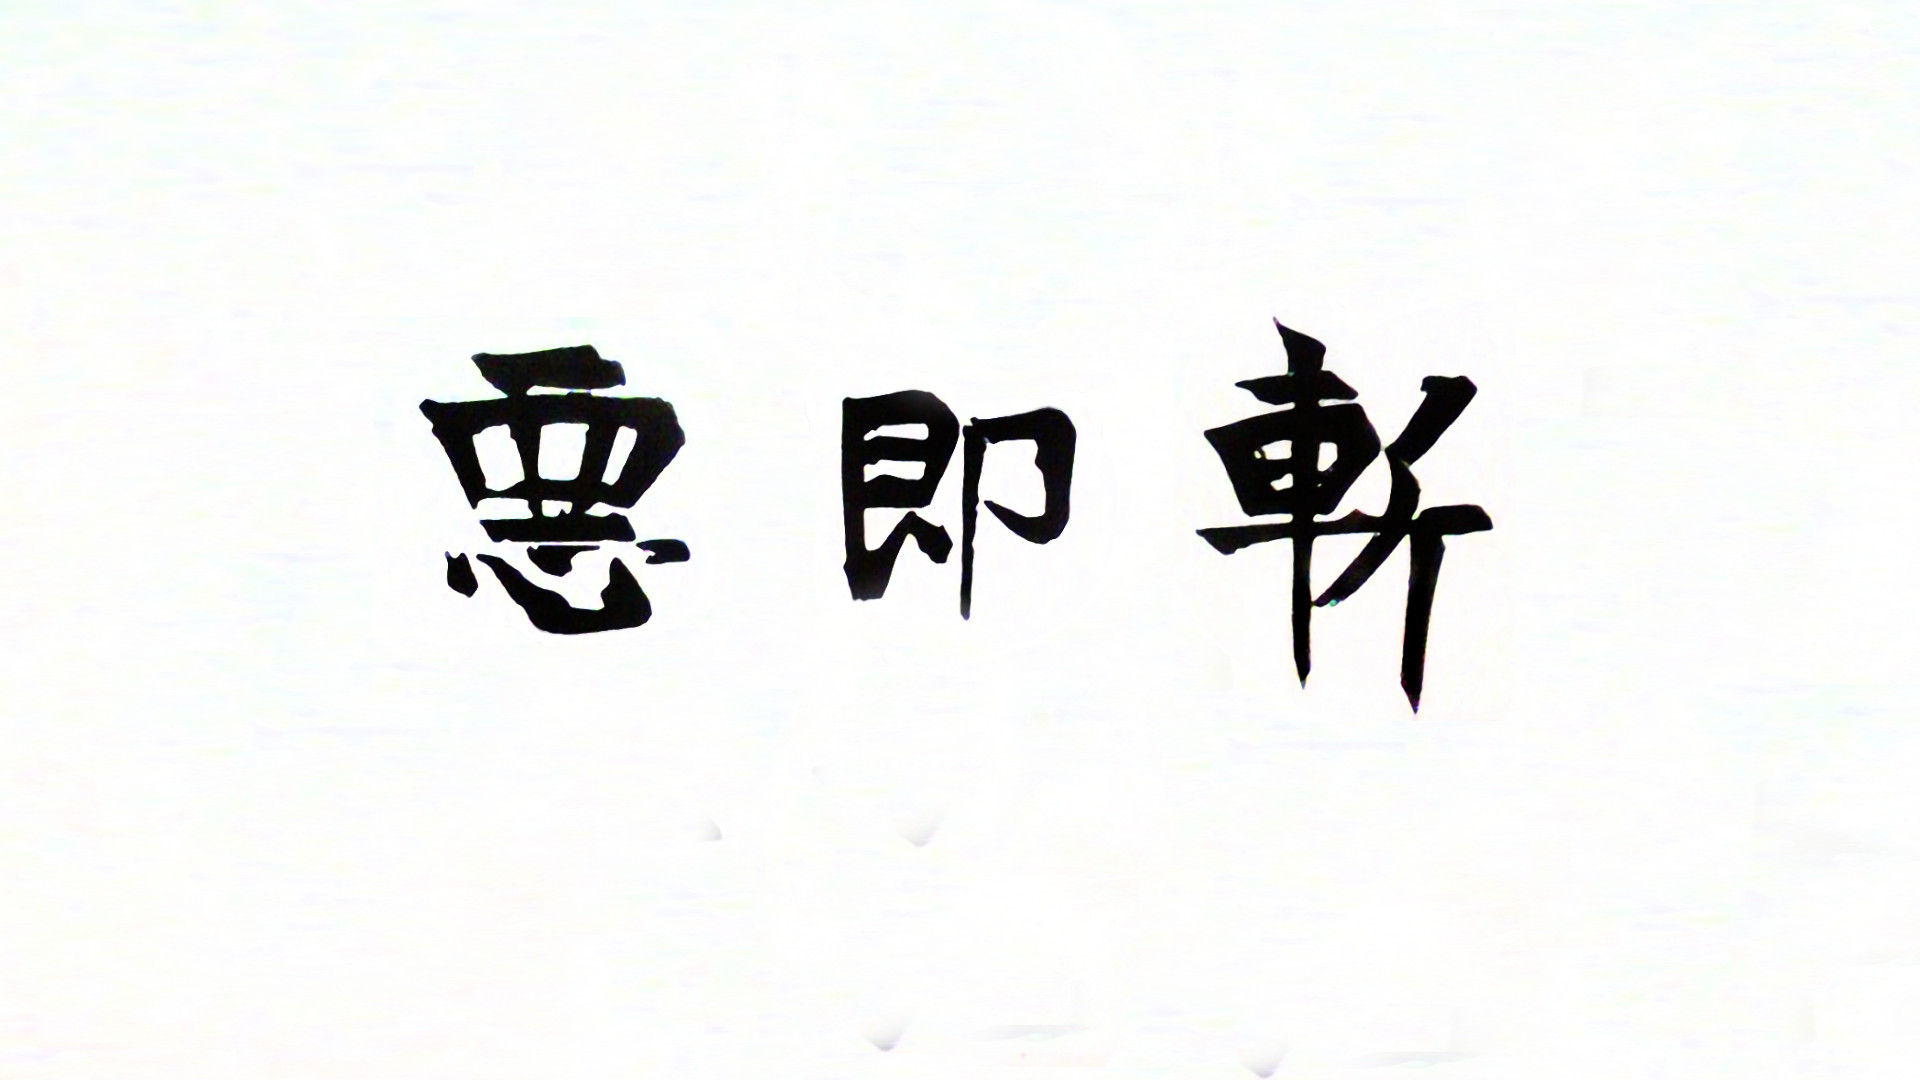 悪即斬